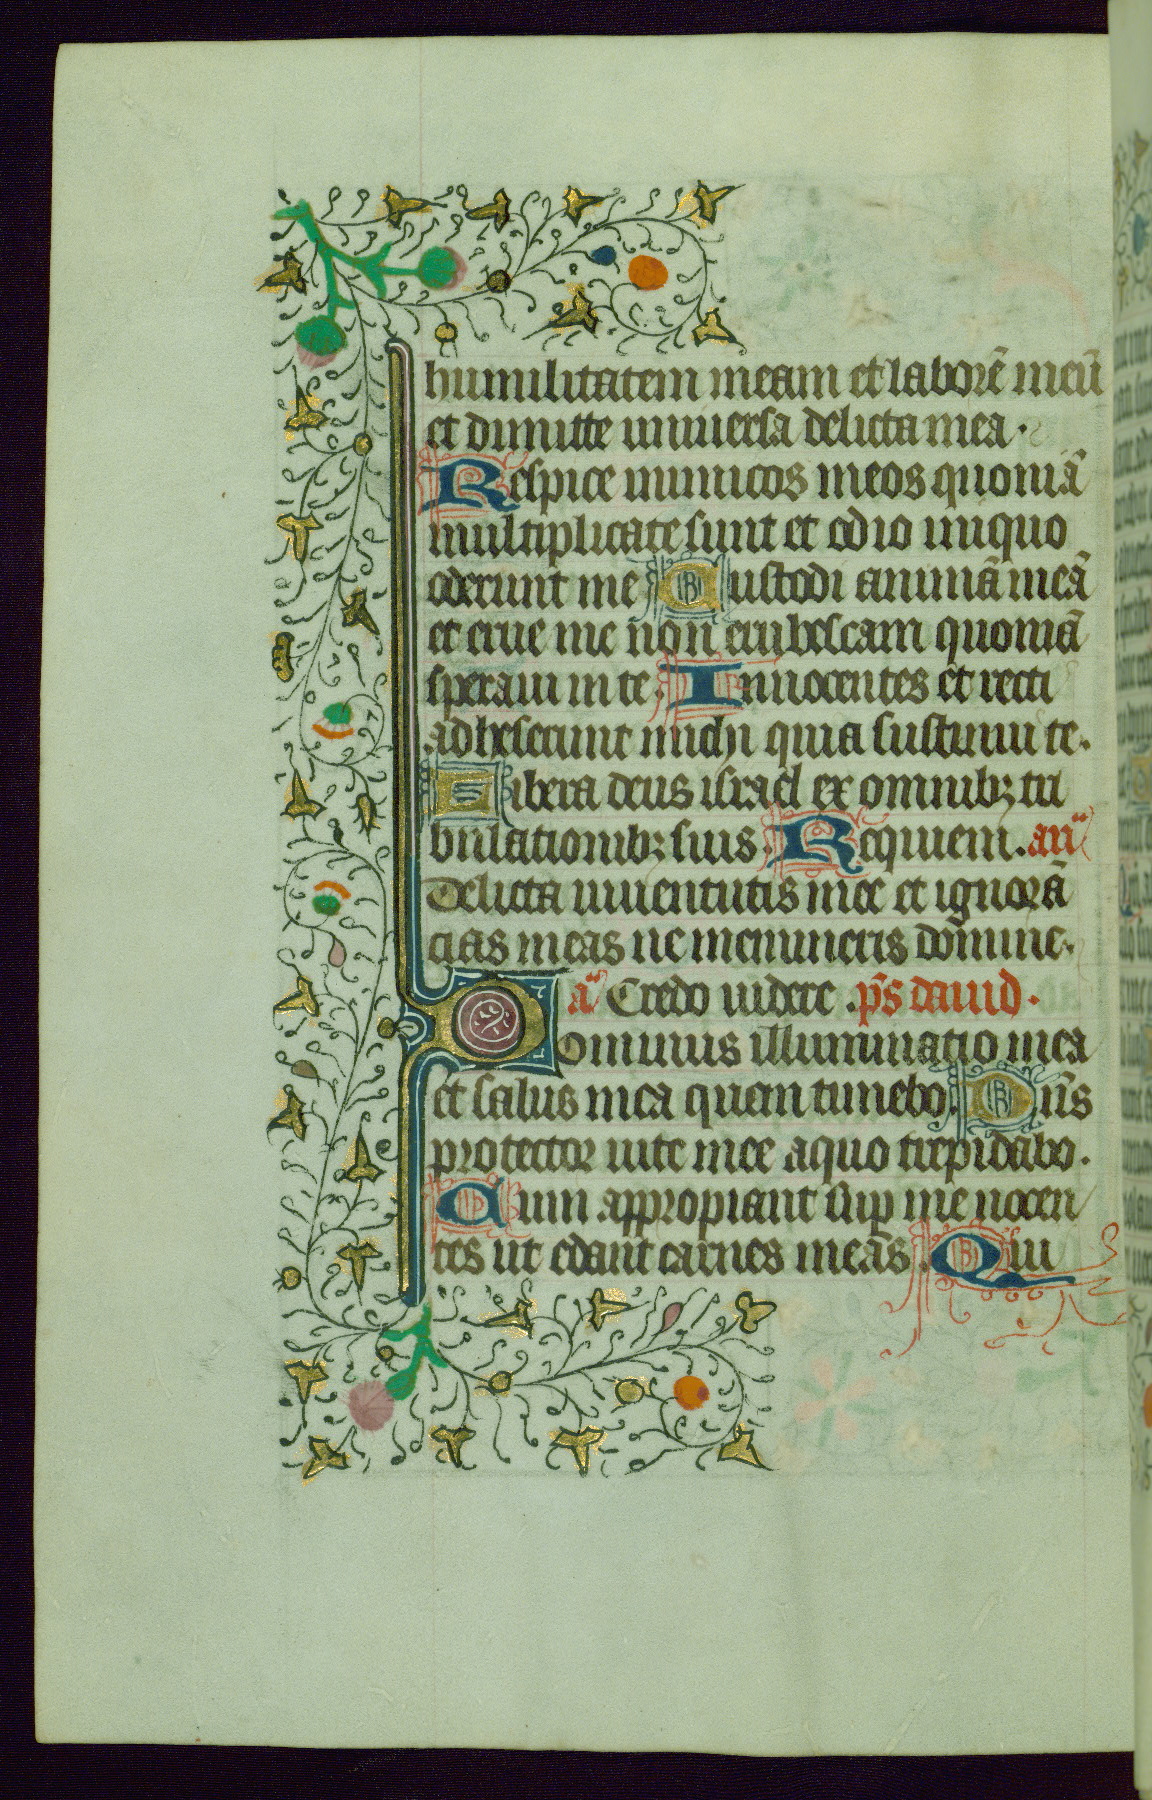 humilitatem meam et laborē meū
et dimitte uniuersa delicta mea .
Respice inimicos meos quoniā
multiplicate sunt et odio iniquo
oderunt me Custodi animā meā
et erue me non erubescam quoniā
speraui in te . Innocentes et recti
adheserunt michi quia sustinui te .
Libera deus israel ex omnibꝫ tri
bulationibꝫ suis . Requiem . añ
Delicta iuuentutis mee et ignorā
cias meas ne memineris domine .
añ Credo uidere . p̄s dauid .
Dominus illuminatio mea
et salus mea quem timebo . Dn̄s
protector uite mee a quo trepidabo .
Cum appropiant sup me nocen
tes ut edant carnes meas . Qui